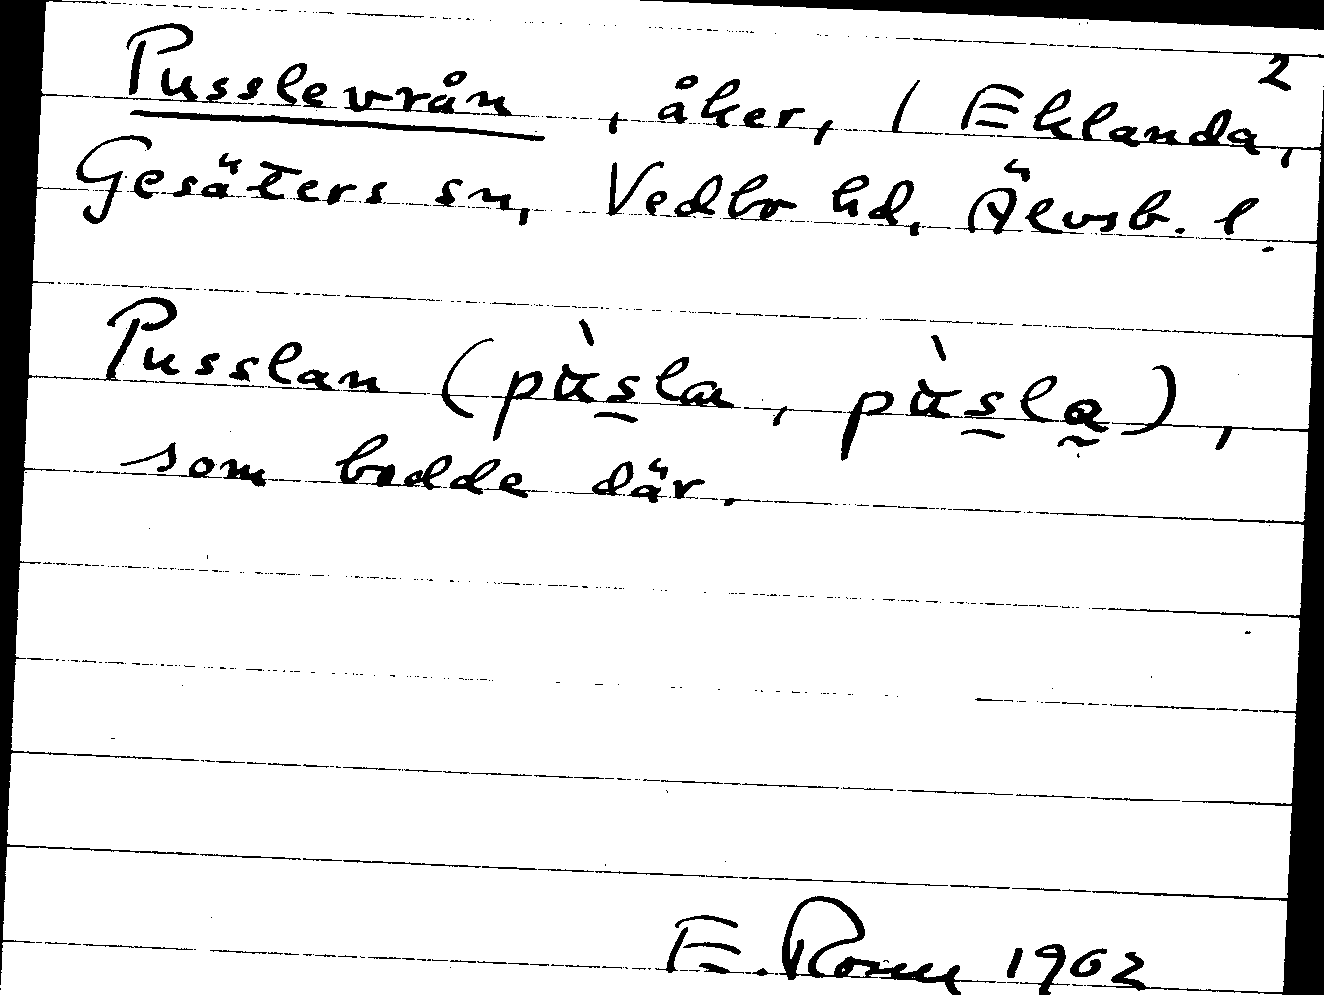 2
Pusslevrån, åker, / Eklanda,
Gesäters sn, Vedbo hd, Älvsb. l.
Pusslan (pὰs̰la, pὰs̰la̰),
som bodde där.
E. 1902